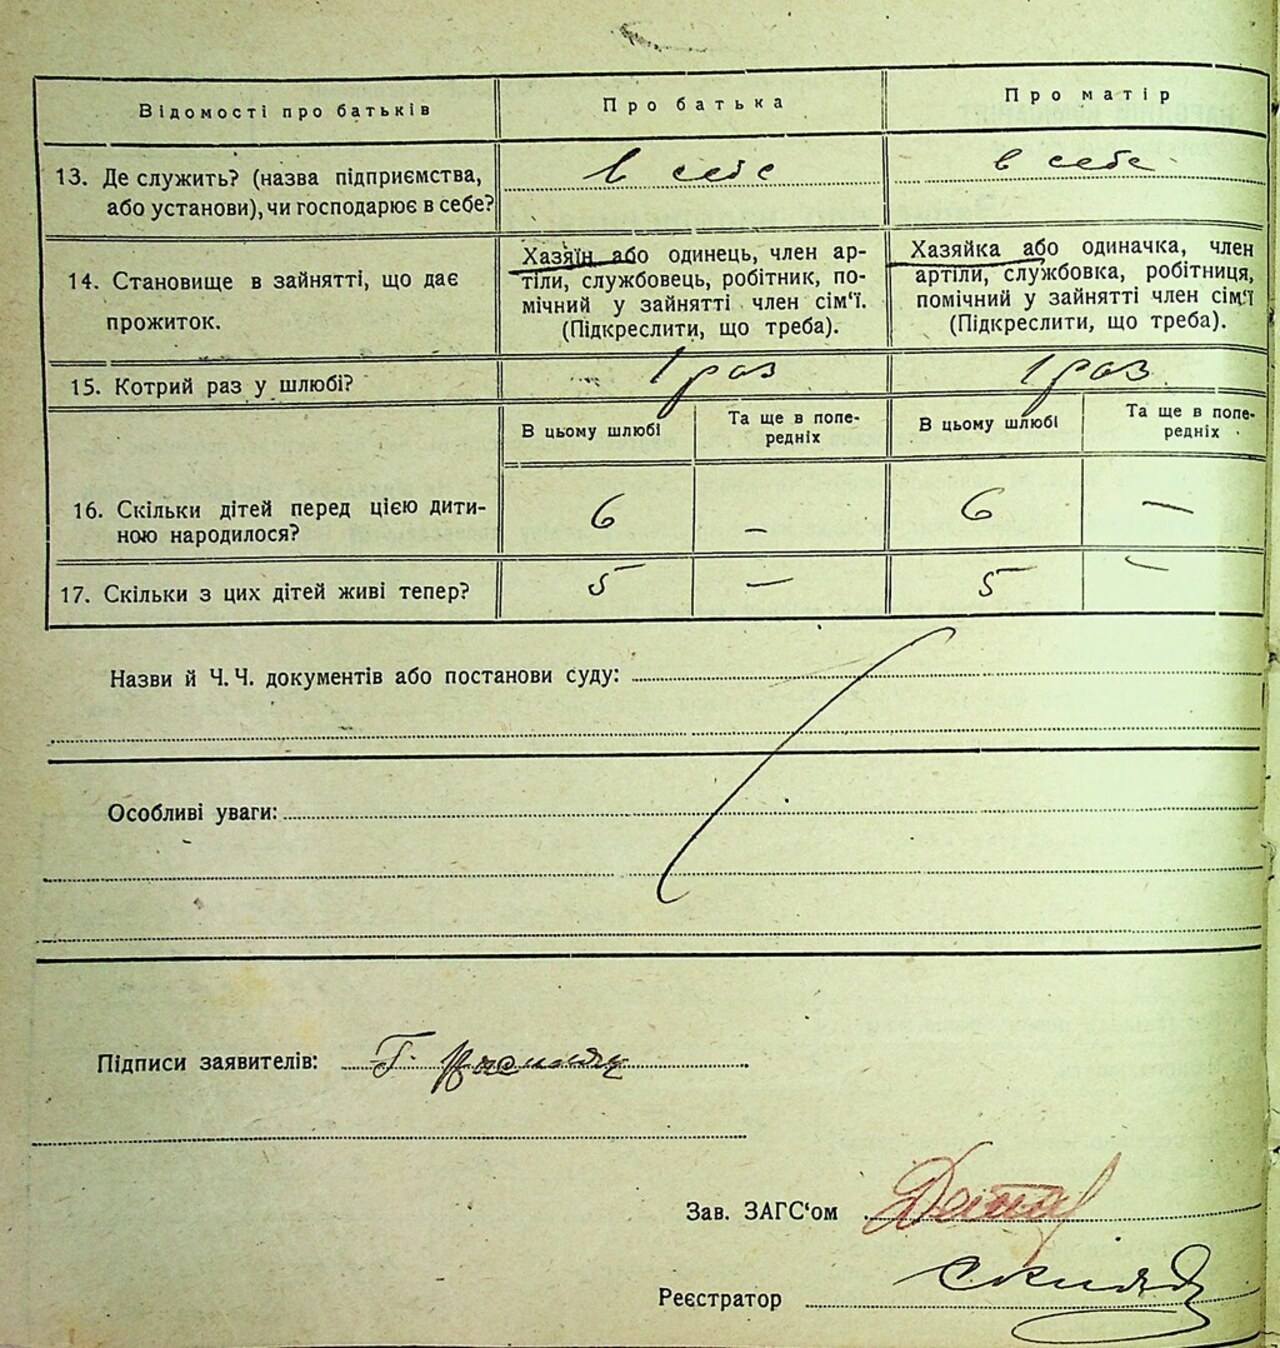 Відомості про батьків
Про батька
Про матір
13. Де служить? (назва підприємства,
або установи), чи господарює в себе?
в себе
в себе
14. Становище в зайнятті, що дає
прожиток.
Хазяїн або одинець, член ар-
тіли, службовець, робітник, по-
мічний у зайнятті член сім'ї.
(Підкреслити, що треба).
Хазяйка або одиначка, член
артіли, службовка, робітниця,
помічний у зайнятті член сім'ї
(Підкреслити, що треба).
15. Котрий раз у шлюбі?
1 раз
1 раз
В цьому шлюбі
Та ще в попе-
редніх
В цьому шлюбі
Та ще в попе-
редніх
16. Скільки дітей перед цією дити-
ною народилося?
6
—
6
—
17. Скільки з цих дітей живі тепер?
5
—
5
—
Назви й Ч. Ч. документів або постанови суду:
Особливі уваги:
Підписи заявителів: Г.
Зав. ЗАГС'ом
Реєстратор